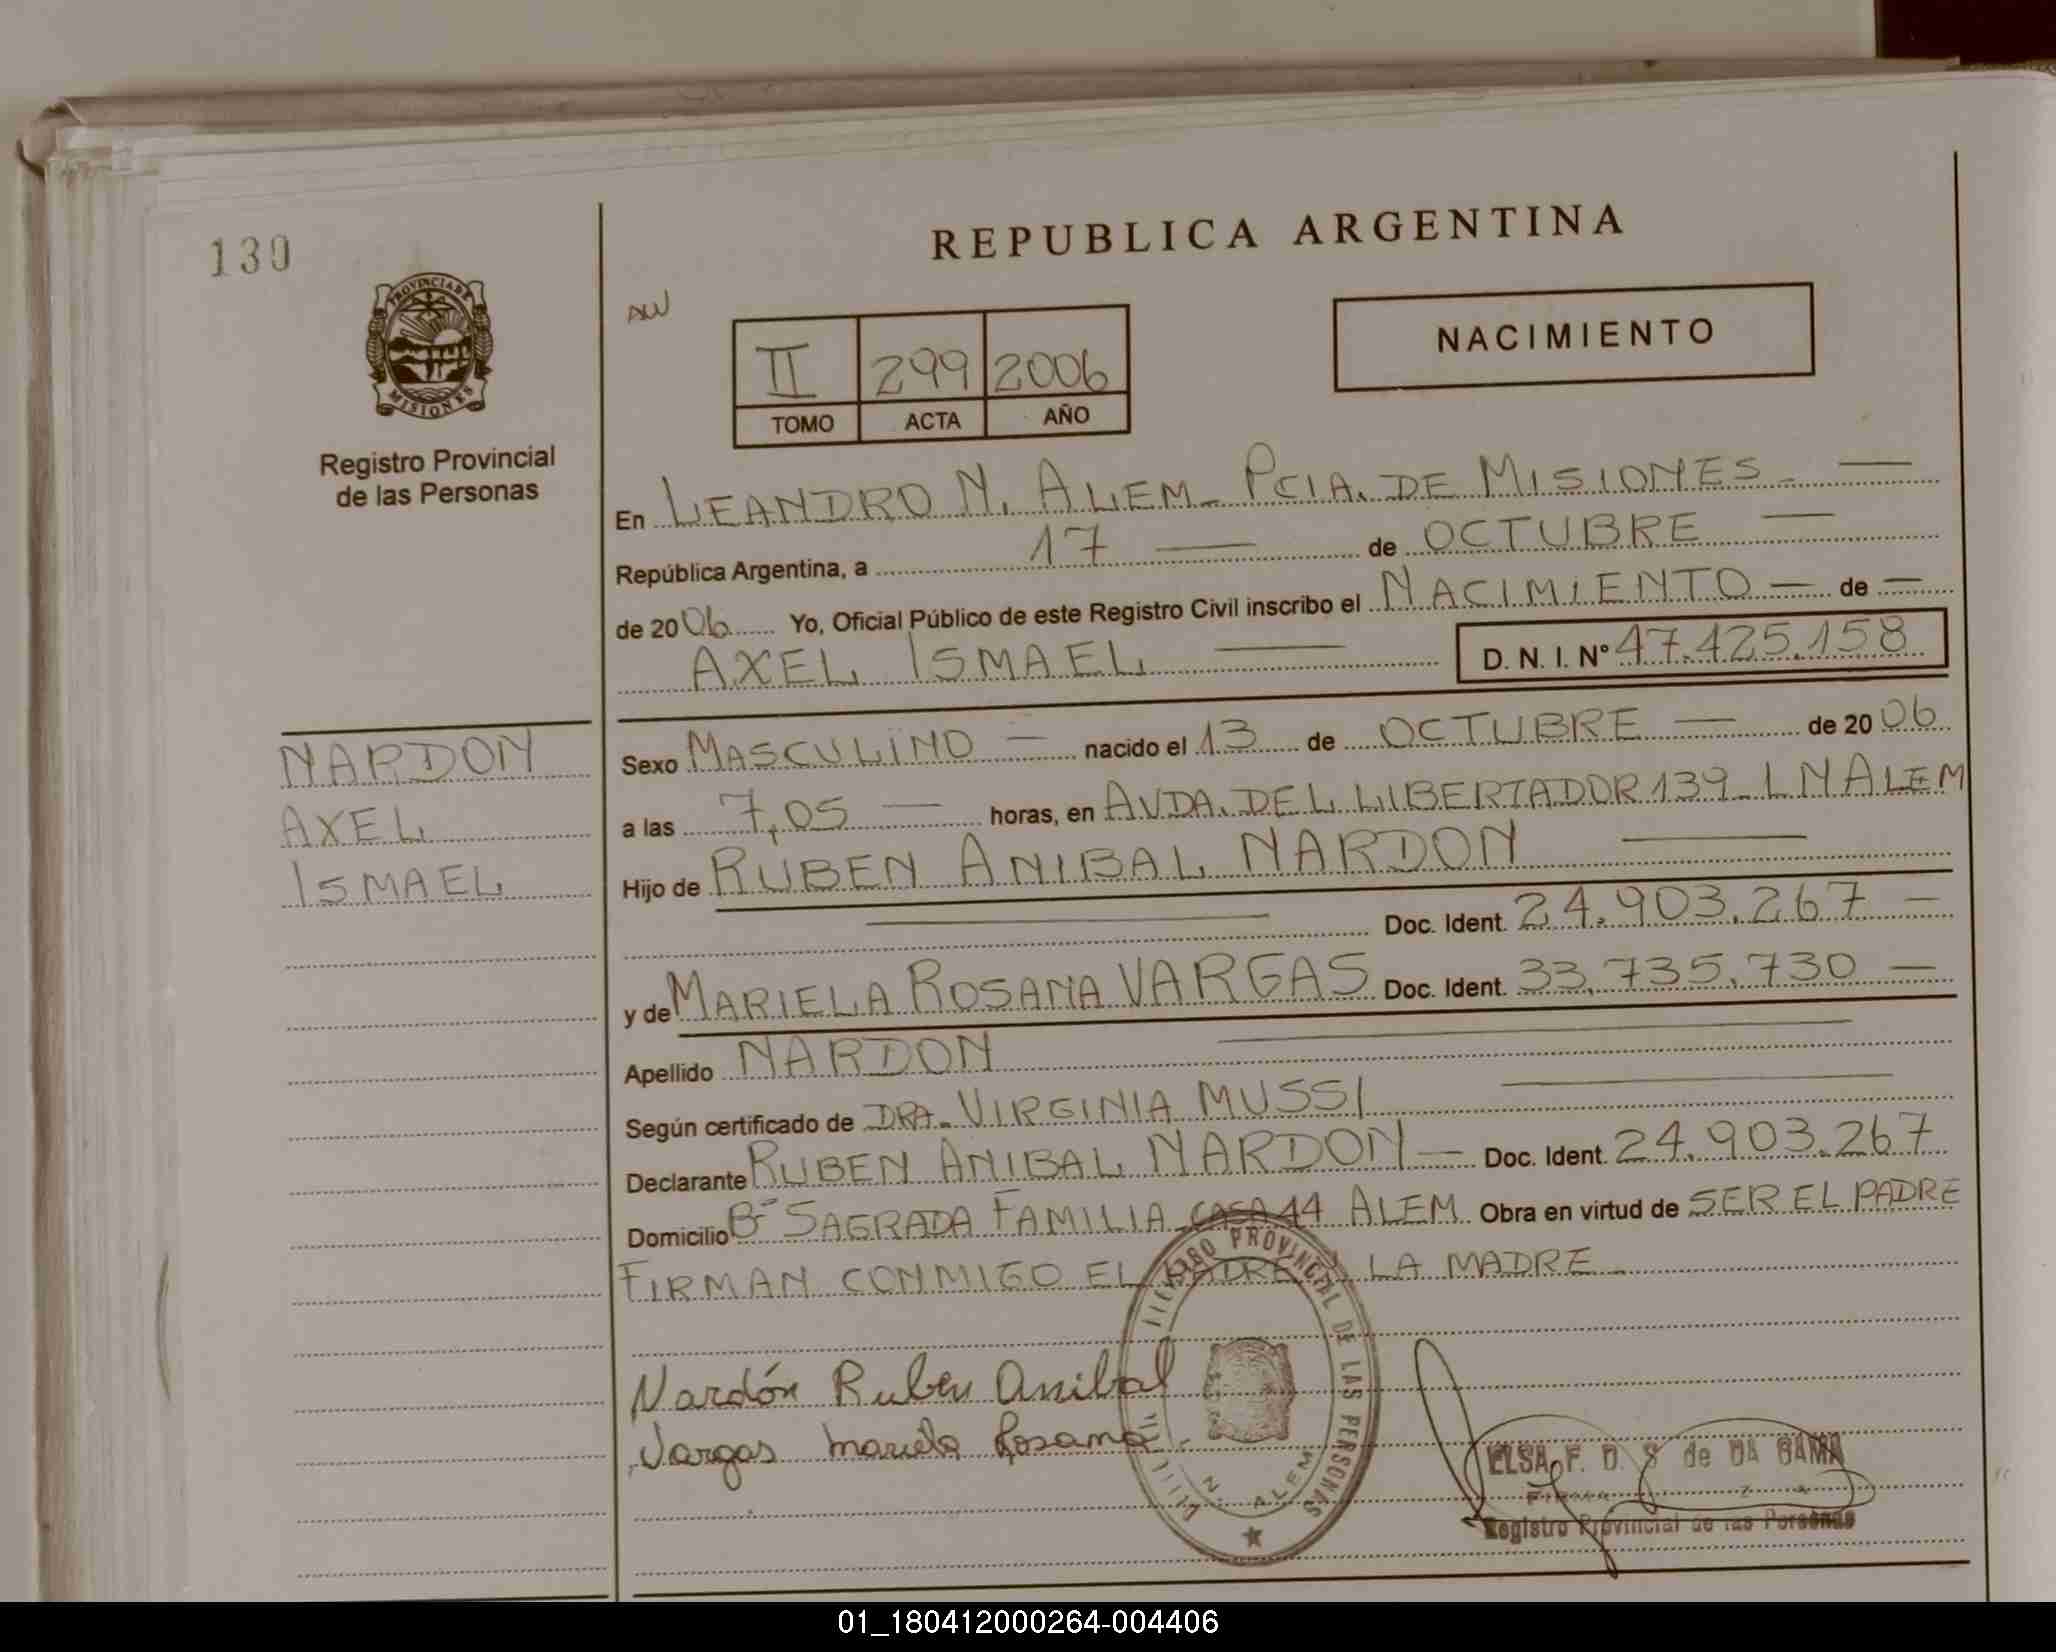 130
PROVINCIA DE
MISIONES
Registro Provincial
de las Personas
REPUBLICA ARGENTINA
II 299 2006
TOMO ACTA AÑO
NACIMIENTO
En LEANDRO N. ALEM - PCIA. DE MISIONES -
República Argentina, a 17 — de OCTUBRE —
de 2006 Yo, Oficial Público de este Registro Civil inscribo el NACIMIENTO — de —
AXEL ISMAEL — D. N. I. N° 47.425.158
NARDON
AXEL
ISMAEL
Sexo MASCULINO — nacido el 13 de OCTUBRE — de 2006
a las 7,05 — horas, en AVDA. DEL LIBERTADOR 139 - L N ALEM
Hijo de RUBEN ANIBAL NARDON —
— Doc. Ident. 24.903.267 —
y de MARIELA ROSANA VARGAS Doc. Ident. 33.735.730 —
Apellido NARDON —
Según certificado de DRA. VIRGINIA MUSSI —
Declarante RUBEN ANIBAL NARDON — Doc. Ident. 24.903.267
Domicilio B° SAGRADA FAMILIA - CASA 44 ALEM Obra en virtud de SER EL PADRE
FIRMAN CONMIGO EL PADRE LA MADRE -
Nardón Ruben Anibal
Vargas Mariela Rosana
PROVINCIAL DE LAS PERSONAS
N. ALEM
ELSA F. D. S de DA GAMA
Registro Provincial de las Personas
01_180412000264-004406